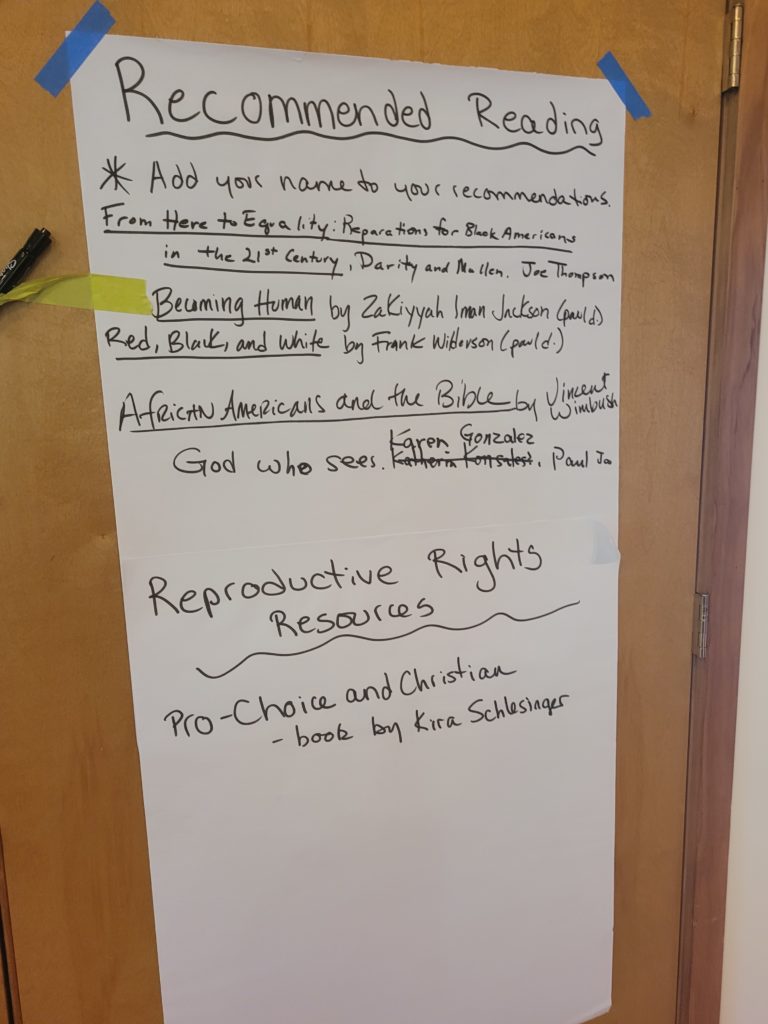 Recommended Reading
* Add your name to your recommendations.
From Here to Equality: Reparations for Black Americans
in the 21st Century, Darity and Mullen. Joe Thompson
Becoming Human by Zakiyyah Iman Jackson (paul d.)
Red, Black, and White by Frank Wilderson (paul d.)
African Americans and the Bible by Vincent
Wimbush
Karen Gonzalez
God who sees. Paul Joo
Reproductive Rights
Resources
Pro-Choice and Christian
- book by Kira Schlesinger